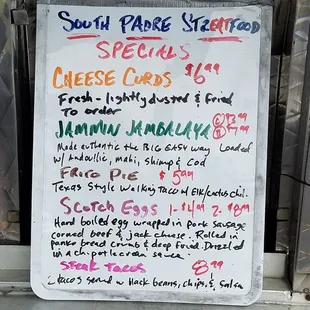 South Padre StrEatFood
SPECIALS
CHEESE CURDS $6.99
Fresh - lightly dusted & fried
to order
JAMMIN JAMBALAYA
Made authentic the BIG EASY way Loaded
w/ Andoullie, mahi, shrimp & cod
FRITO PIE $5.99
Texas Style Walking TACO w/ elk/cactus chili
Scotch Eggs 1-$4.99 2-$8.99
Hard boiled egg wrapped in pork sausage
corned beef & jack cheese. Rolled in
panko bread crumb & deep fried. Drizzled
in a chipotle cream sauce
Steak Tacos 8.99
2 tacos served w/ black beans, chips, & salsa